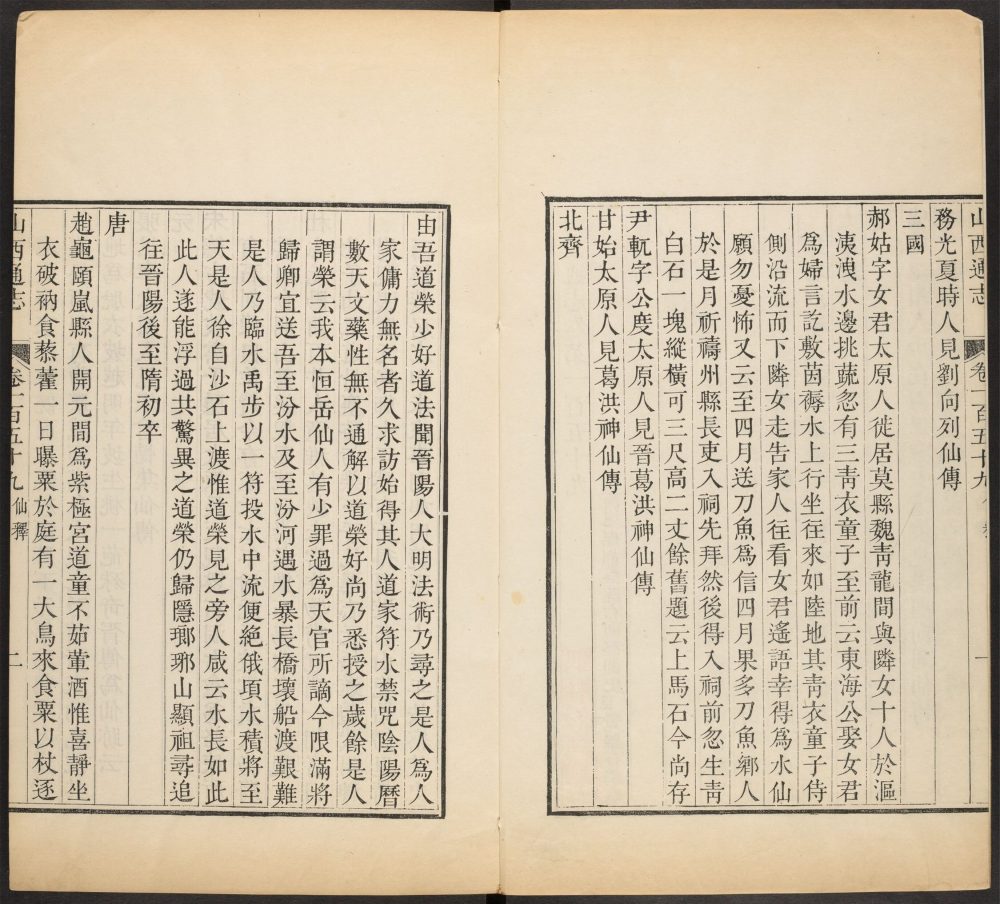 山西通志 卷一百五十九 一
務光夏時人見劉向列仙傳
三國
郝姑字女君太原人徙居莫縣魏靑龍間與隣女十人於漚
洟洩水邊挑蔬忽有三靑衣童子至前云東海公娶女君
爲婦言訖敷茵褥水上行坐往來如陸地其靑衣童子侍
側沿流而下隣女走告家人往看女君遙語幸得爲水仙
願勿憂怖又云至四月送刀魚爲信四月果多刀魚鄕人
於是月祈禱州縣長吏入祠先拜然後得入祠前忽生靑
白石一塊縱橫可三尺高二丈餘舊題云上馬石今尚存
尹軏字公度太原人見晉葛洪神仙傳
甘始太原人見葛洪神仙傳
北齊
由吾道榮少好道法聞晉陽人大明法術乃尋之是人爲人
家傭力無名者久求訪始得其人道家符水禁咒陰陽曆
數天文藥性無不通解以道榮好尚乃悉授之歲餘是人
謂榮云我本恒岳仙人有少罪過爲天官所謫今限滿將
歸卿宜送吾至汾水及至汾河遇水暴長橋壞船渡艱難
是人乃臨水禹步以一符投水中流便絕俄頃水積將至
天是人徐自沙石上渡惟道榮見之旁人咸云水長如此
此人遂能浮過共驚異之道榮仍歸隱瑯琊山顯祖尋追
往晉陽後至隋初卒
唐
趙龜頤嵐縣人開元間爲紫極宮道童不茹葷酒惟喜靜坐
衣破衲食藜藿一日曝粟於庭有一大鳥來食粟以杖逐
山西通志 卷一百五十九 仙釋 二